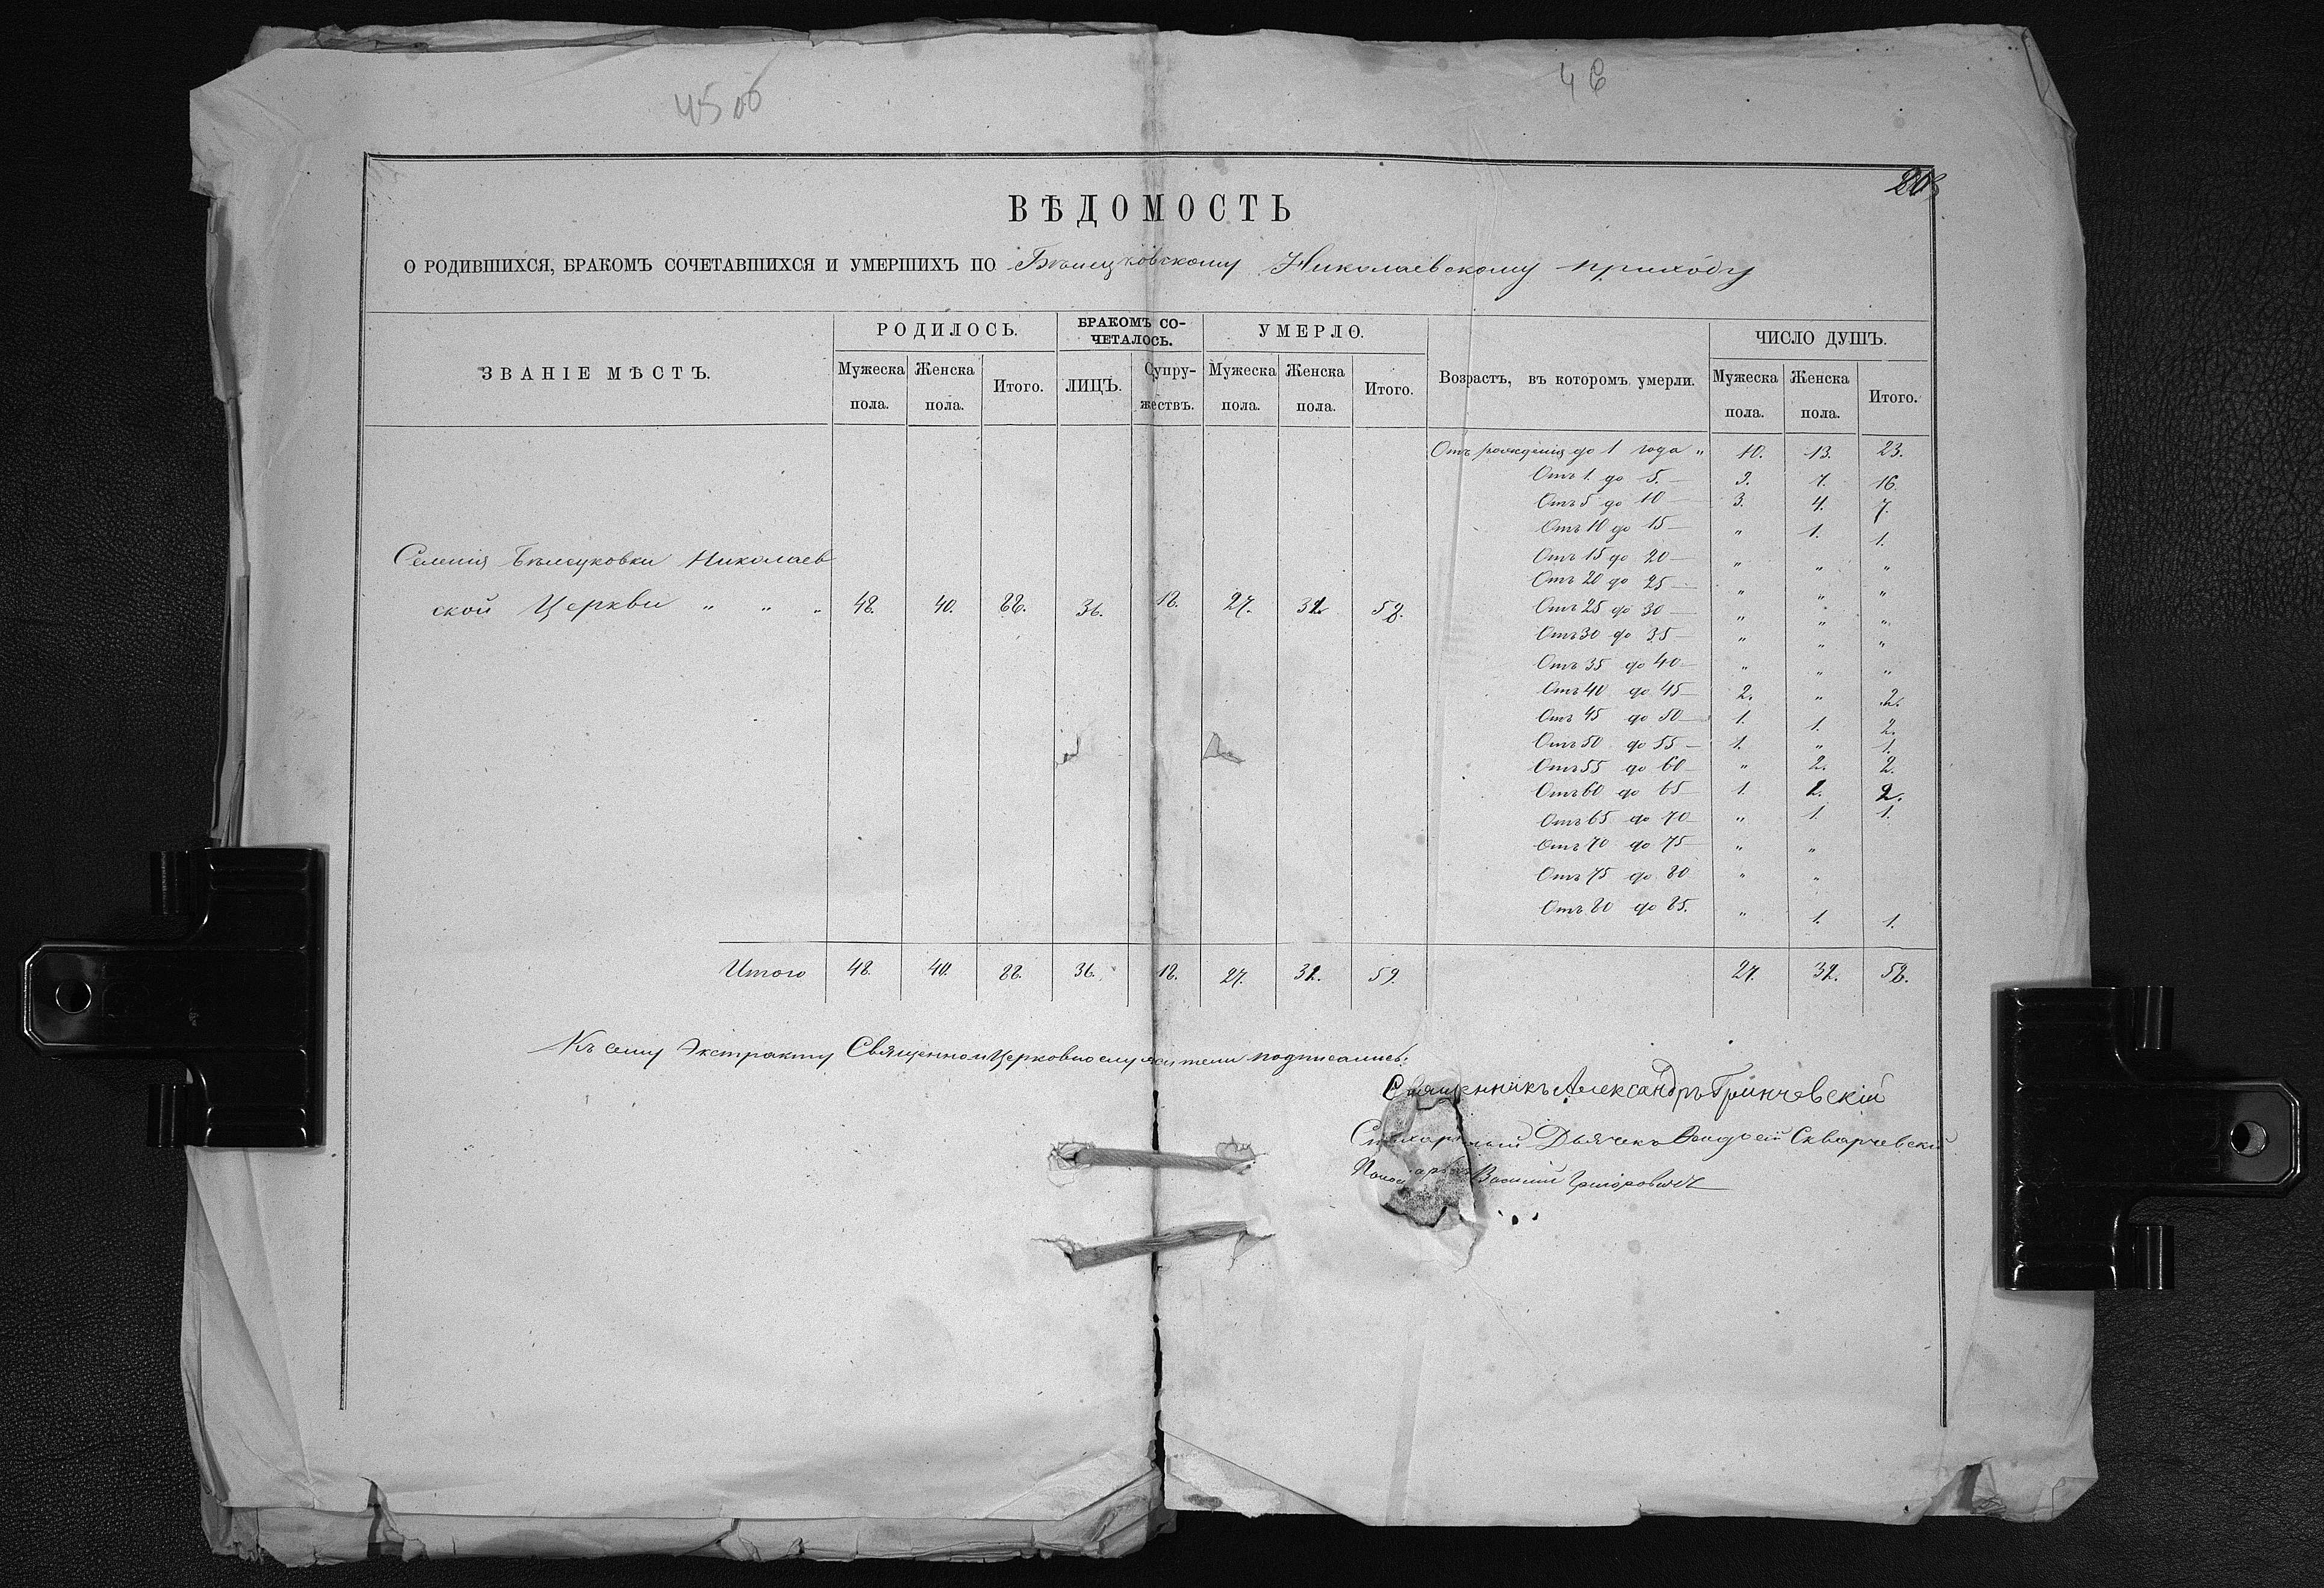 45 об
46
ВѢДОМОСТЬ
О РОДИВШИХСЯ, БРАКОМЪ СОЧЕТАВШИХСЯ И УМЕРШИХЪ ПО Николаевскому приходу
ЗВАНІЕ МѢСТЪ.
РОДИЛОСЬ.
Мужеска пола. Женска пола. Итого.
БРАКОМЪ СО-
ЧЕТАЛОСЬ.
ЛИЦЪ. Супру-
жествъ.
УМЕРЛО.
Мужеска пола. Женска пола. Итого.
Возрастъ, въ которомъ умерли.
ЧИСЛО ДУШЪ.
Мужеска пола. Женска пола. Итого.
Отъ рожденія до 1 года " 10. 13. 23.
Отъ 1. до 5. — 9. 7. 16.
Отъ 5 до 10 — 3. 4. 7.
Отъ 10 до 15 — " 1. 1.
Отъ 15 до 20 — " " "
Отъ 20 до 25 — " " "
Отъ 25 до 30 — " " "
Отъ 30 до 35 — " " "
Отъ 35 до 40 — " " "
Отъ 40 до 45 — 2. " 2.
Отъ 45 до 50 — 1. 1. 2.
Отъ 50 до 55 — 1. " 1.
Отъ 55 до 60 — " 2. 2.
Отъ 60 до 65 — 1. 2.
Отъ 65 до 70 — " 1. 1.
Отъ 70 до 75 — " "
Отъ 75 до 80 " "
Отъ 80 до 85. " 1. 1.
Селенія Николаев
ской Церкви " " " 48. 40. 88. 36. 18. 27.
Итого 48. 40. 88. 36. 18. 27. 59. 27.
Къ сему Экстракту Священноицерковнослужители подписались:
Священникъ Александръ Гринчевскій
Стихарный Дьячекъ Скварчевскій
Пономарь Василій Григоровичъ